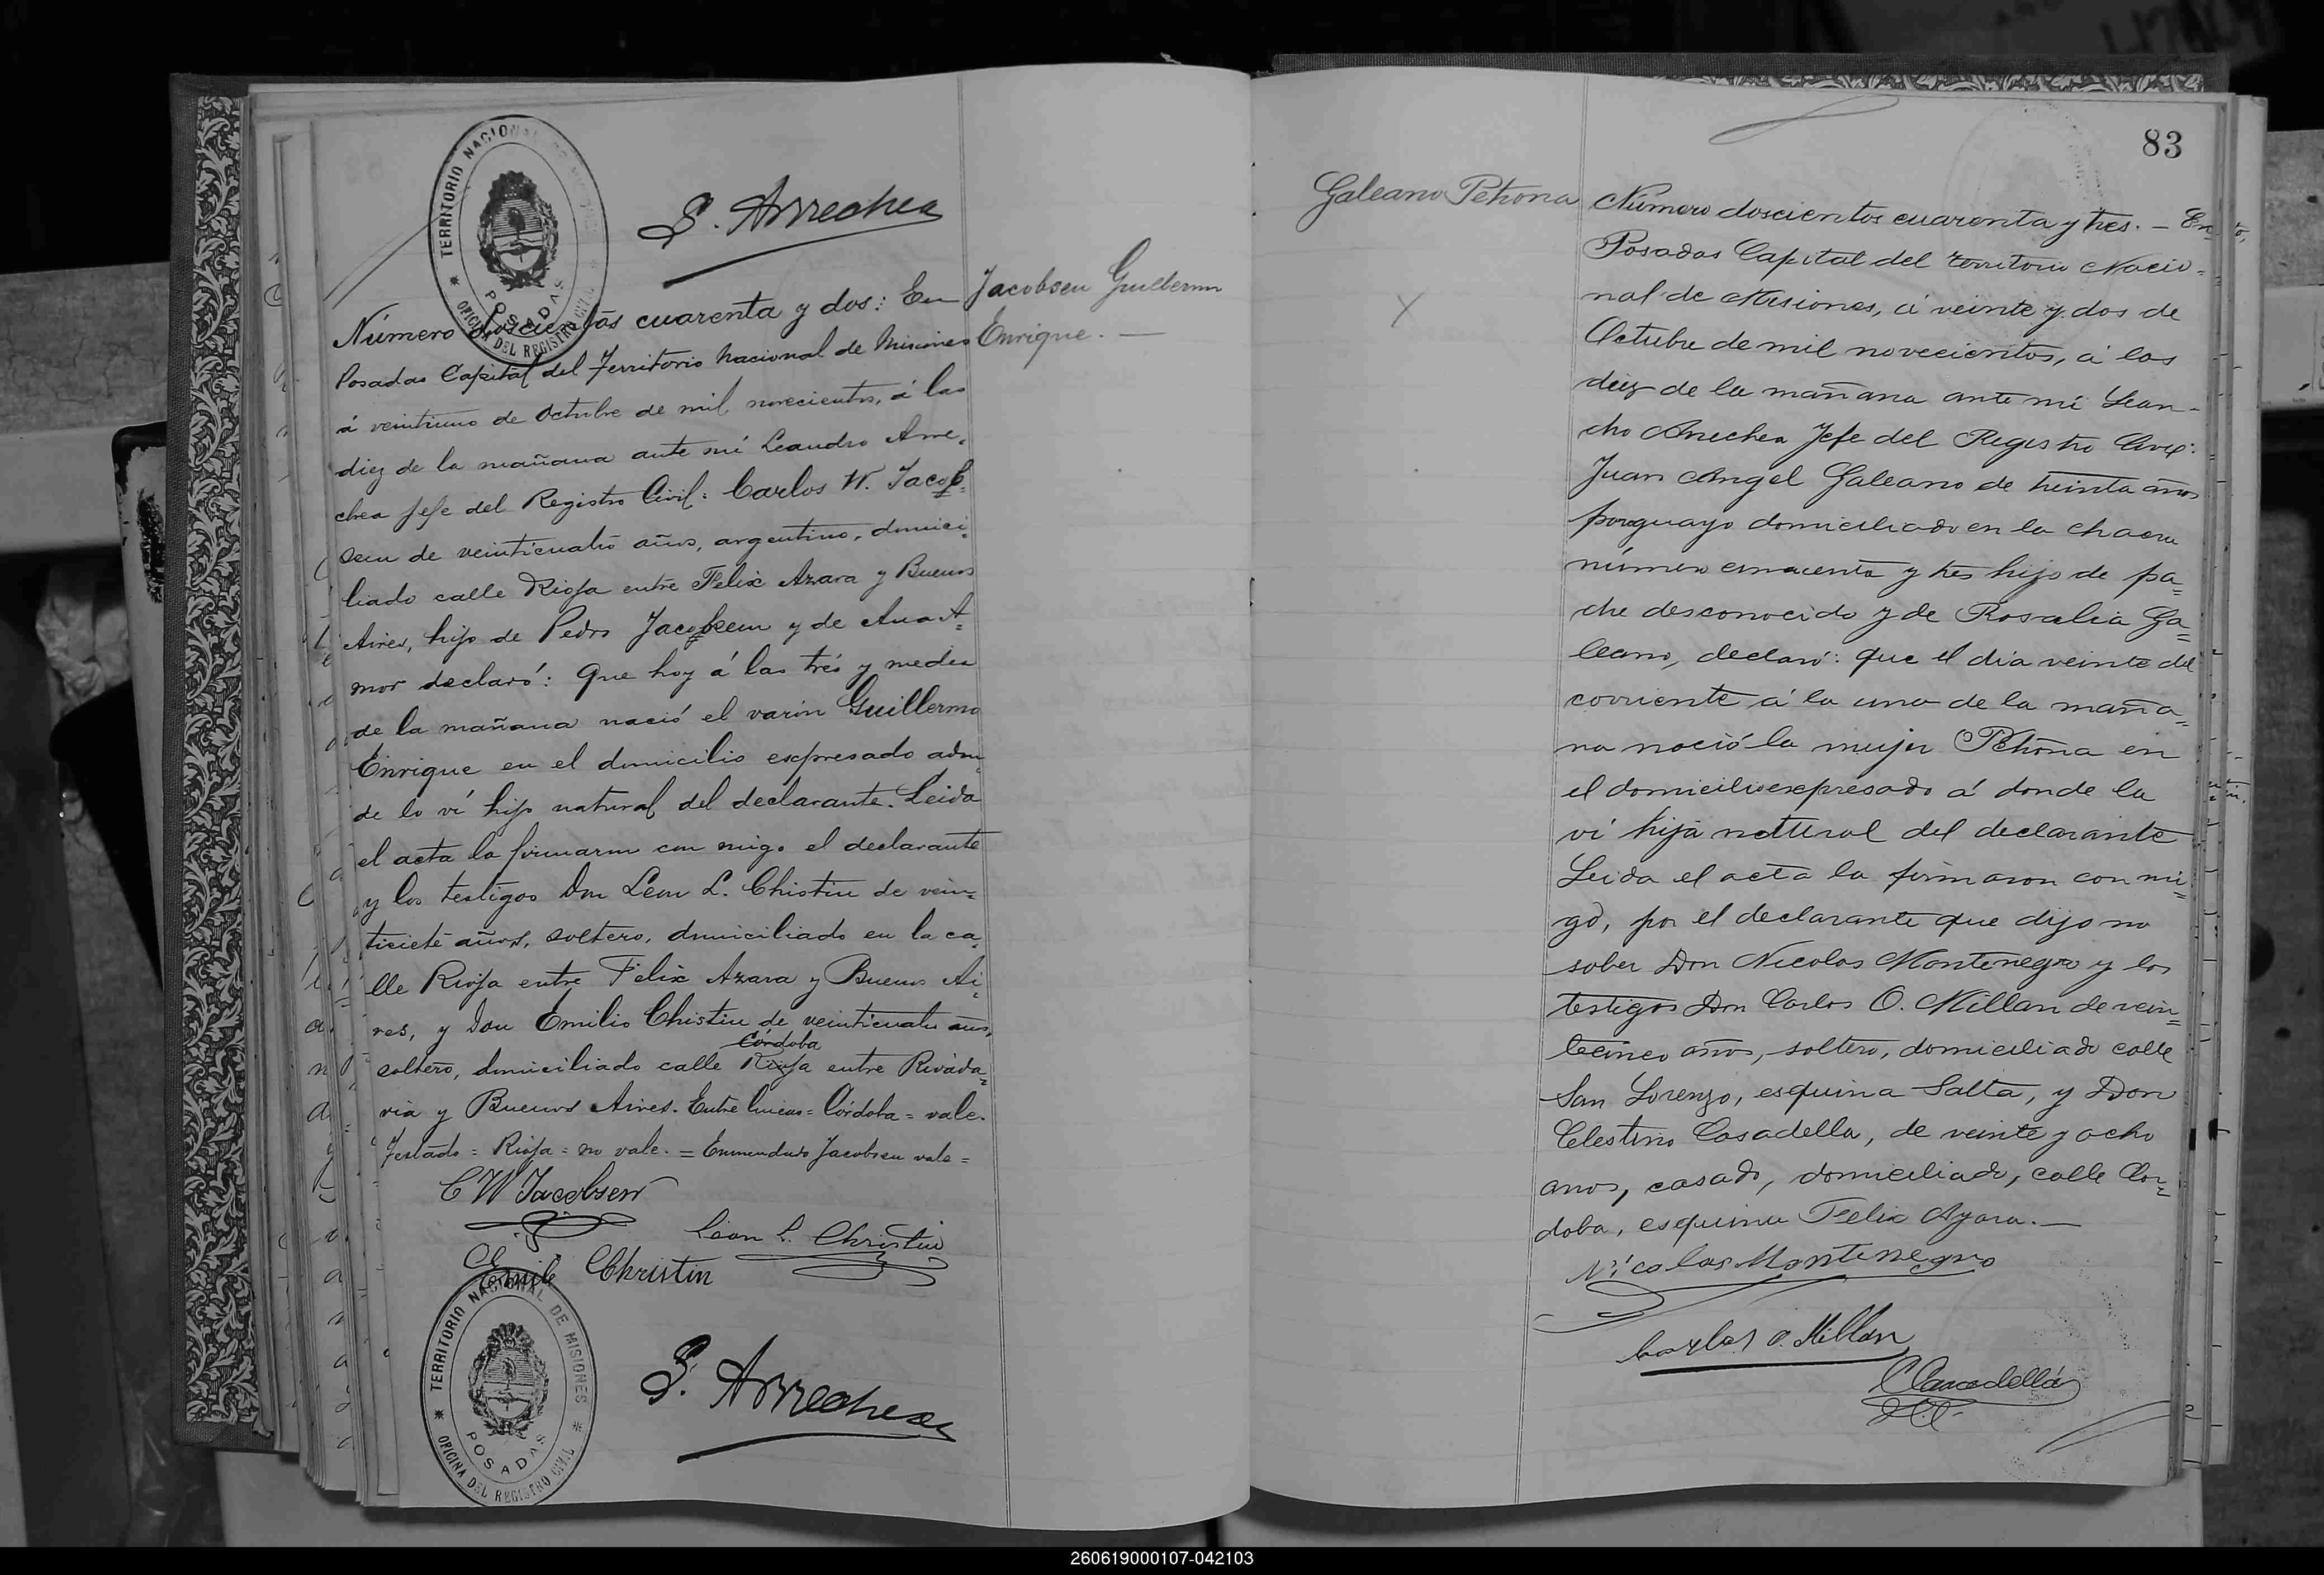 TERRITORIO NACIONAL
POSADAS
OFICINA DEL REGISTRO CIVIL
L. Arrechea
Jacobsen Guillermo
Enrique. —
Número doscientos cuarenta y dos: En
Posadas Capital del Territorio Nacional de Misiones
á veintiuno de Octubre de mil novecientos, á las
diez de la mañana ante mí Leandro Arre-
chea Jefe del Registro Civil: Carlos W. Jacob-
sen de veinticuatro años, argentino, domici-
liado calle Rioja entre Felix Azara y Buenos
Aires, hijo de Pedro Jacobsen y de Ana A-
mor declaró: Que hoy á las trés y media
de la mañana nació el varón Guillermo
Enrique en el domicilio espresado adon-
de lo ví hijo natural del declarante. Leida
el acta la firmaron con migo el declarante
y los testigos Don Leon L. Christin de vein-
ticieté años, soltero, domiciliado en la ca-
lle Rioja entre Felix Azara y Buenos Ai-
res, y Don Emilio Christin de veinticuatro años,
Córdoba
soltero, domiciliado calle Rioja entre Rivada-
via y Buenos Aires. Entre lineas = Córdoba = vale.
Testado = Rioja = no vale. = Enmendado Jacobsen vale =
C W Jacobsen
Leon L. Christin
Emile Christin
TERRITORIO NACIONAL DE MISIONES
POSADAS
OFICINA DEL REGISTRO CIVIL
L. Arrechea
83
Galeano Petrona
Número doscientos cuarenta y tres. — En
Posadas Capital del territorio Nacio-
nal de Misiones, á veinte y dos de
Octubre de mil novecientos, á las
diez de la mañana ante mí Lean-
dro Arrechea Jefe del Registro Civil:
Juan Angel Galeano de treinta años
paraguayo domiciliado en la chacra
número cincuenta y tres hijo de pa-
dre desconocido y de Rosalia Ga-
leano, declaró: que el dia veinte del
corriente á la una de la maña-
na nació la mujer Petrona en
el domicilio expresado á donde la
ví hija natural del declarante
Leida el acta la firmaron con mi-
go, por el declarante que dijo no
saber Don Nicolas Montenegro y los
testigos Don Carlos O. Millan de vein-
tecinco años, soltero, domiciliado calle
San Lorenzo, esquina Salta, y Don
Celestino Casadella, de veinte y ocho
anos, casado, domiciliado, calle Cor-
doba, esquina Felix Azara. —
Nicolas Montenegro
Carlos O. Millan
C Casadellá
260619000107-042103